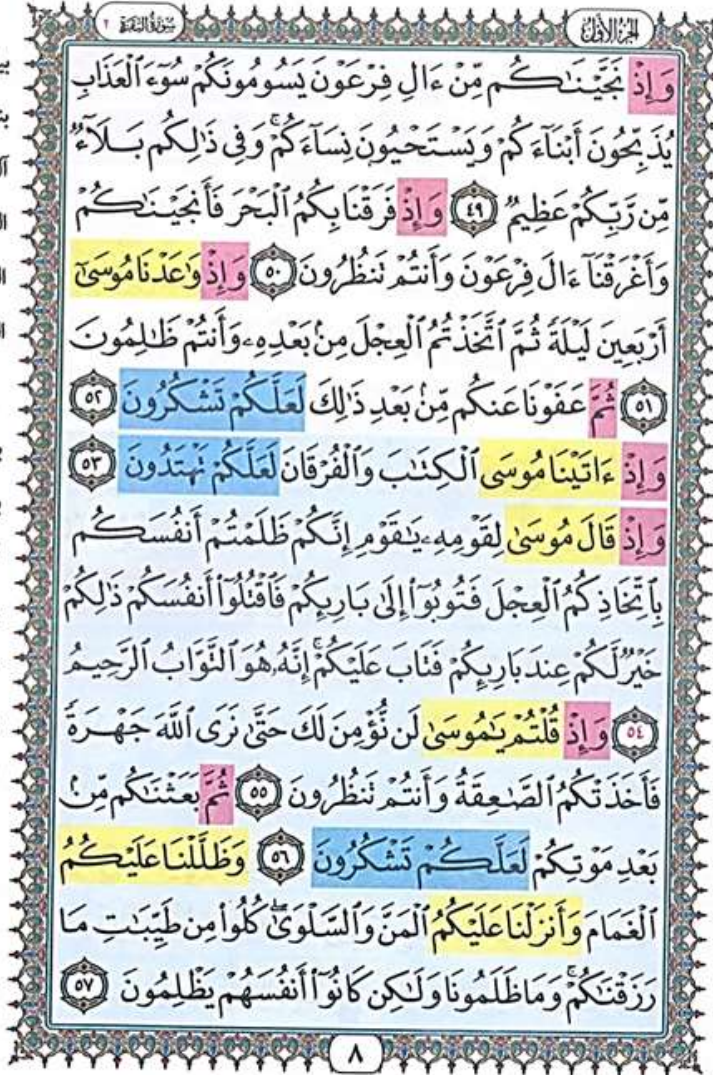 الجزء الأول
سورة البقرة ٢
وَإِذْ نَجَّيْنَٰكُم مِّنْ ءَالِ فِرْعَوْنَ يَسُومُونَكُمْ سُوٓءَ ٱلْعَذَابِ
يُذَبِّحُونَ أَبْنَآءَكُمْ وَيَسْتَحْيُونَ نِسَآءَكُمْ ۚ وَفِى ذَٰلِكُم بَلَآءٌ
مِّن رَّبِّكُمْ عَظِيمٌ ٤٩ وَإِذْ فَرَقْنَا بِكُمُ ٱلْبَحْرَ فَأَنجَيْنَٰكُمْ
وَأَغْرَقْنَآ ءَالَ فِرْعَوْنَ وَأَنتُمْ تَنظُرُونَ ٥٠ وَإِذْ وَٰعَدْنَا مُوسَىٰٓ
أَرْبَعِينَ لَيْلَةً ثُمَّ ٱتَّخَذْتُمُ ٱلْعِجْلَ مِنۢ بَعْدِهِۦ وَأَنتُمْ ظَٰلِمُونَ
٥١ ثُمَّ عَفَوْنَا عَنكُم مِّنۢ بَعْدِ ذَٰلِكَ لَعَلَّكُمْ تَشْكُرُونَ ٥٢
وَإِذْ ءَاتَيْنَا مُوسَى ٱلْكِتَٰبَ وَٱلْفُرْقَانَ لَعَلَّكُمْ تَهْتَدُونَ ٥٣
وَإِذْ قَالَ مُوسَىٰ لِقَوْمِهِۦ يَٰقَوْمِ إِنَّكُمْ ظَلَمْتُمْ أَنفُسَكُم
بِٱتِّخَاذِكُمُ ٱلْعِجْلَ فَتُوبُوٓا۟ إِلَىٰ بَارِئِكُمْ فَٱقْتُلُوٓا۟ أَنفُسَكُمْ ذَٰلِكُمْ
خَيْرٌ لَّكُمْ عِندَ بَارِئِكُمْ فَتَابَ عَلَيْكُمْ ۚ إِنَّهُۥ هُوَ ٱلتَّوَّابُ ٱلرَّحِيمُ
٥٤ وَإِذْ قُلْتُمْ يَٰمُوسَىٰ لَن نُّؤْمِنَ لَكَ حَتَّىٰ نَرَى ٱللَّهَ جَهْرَةً
فَأَخَذَتْكُمُ ٱلصَّٰعِقَةُ وَأَنتُمْ تَنظُرُونَ ٥٥ ثُمَّ بَعَثْنَٰكُم مِّنۢ
بَعْدِ مَوْتِكُمْ لَعَلَّكُمْ تَشْكُرُونَ ٥٦ وَظَلَّلْنَا عَلَيْكُمُ
ٱلْغَمَامَ وَأَنزَلْنَا عَلَيْكُمُ ٱلْمَنَّ وَٱلسَّلْوَىٰ ۖ كُلُوا۟ مِن طَيِّبَٰتِ مَا
رَزَقْنَٰكُمْ ۖ وَمَا ظَلَمُونَا وَلَٰكِن كَانُوٓا۟ أَنفُسَهُمْ يَظْلِمُونَ ٥٧
٨